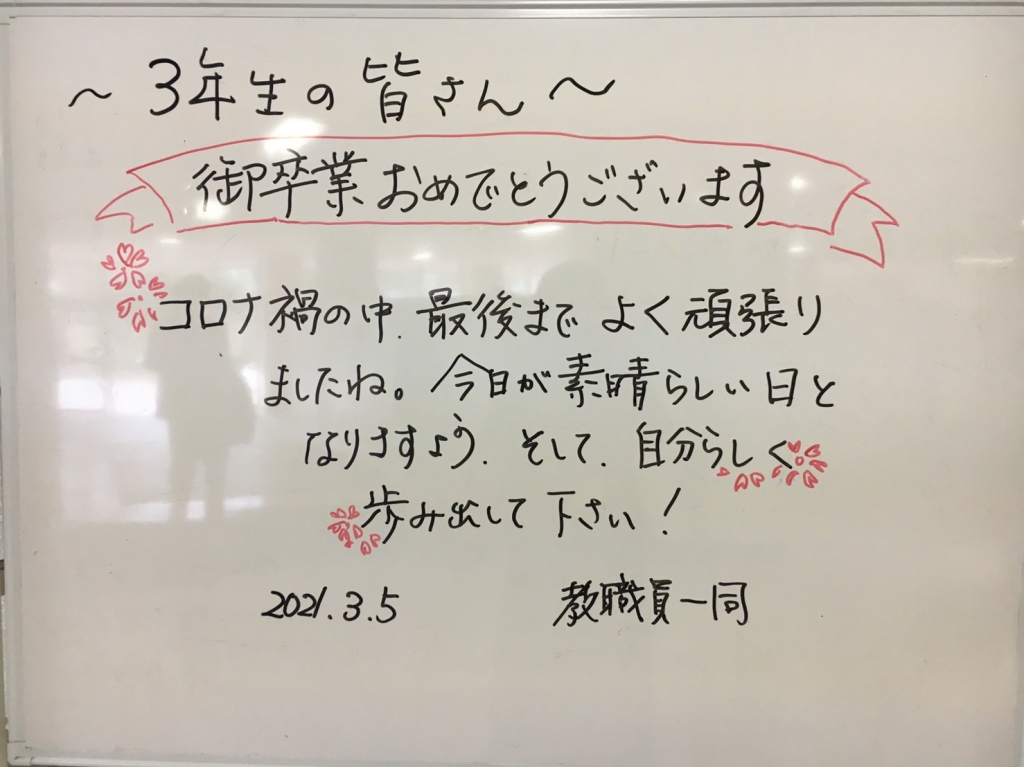 ～3年生の皆さん～
御卒業おめでとうございます
コロナ禍の中.最後まで よく頑張り
ましたね。今日が素晴らしい日と
なりますよう.そして.自分らしく
歩み出して下さい！
2021.3.5 教職員一同